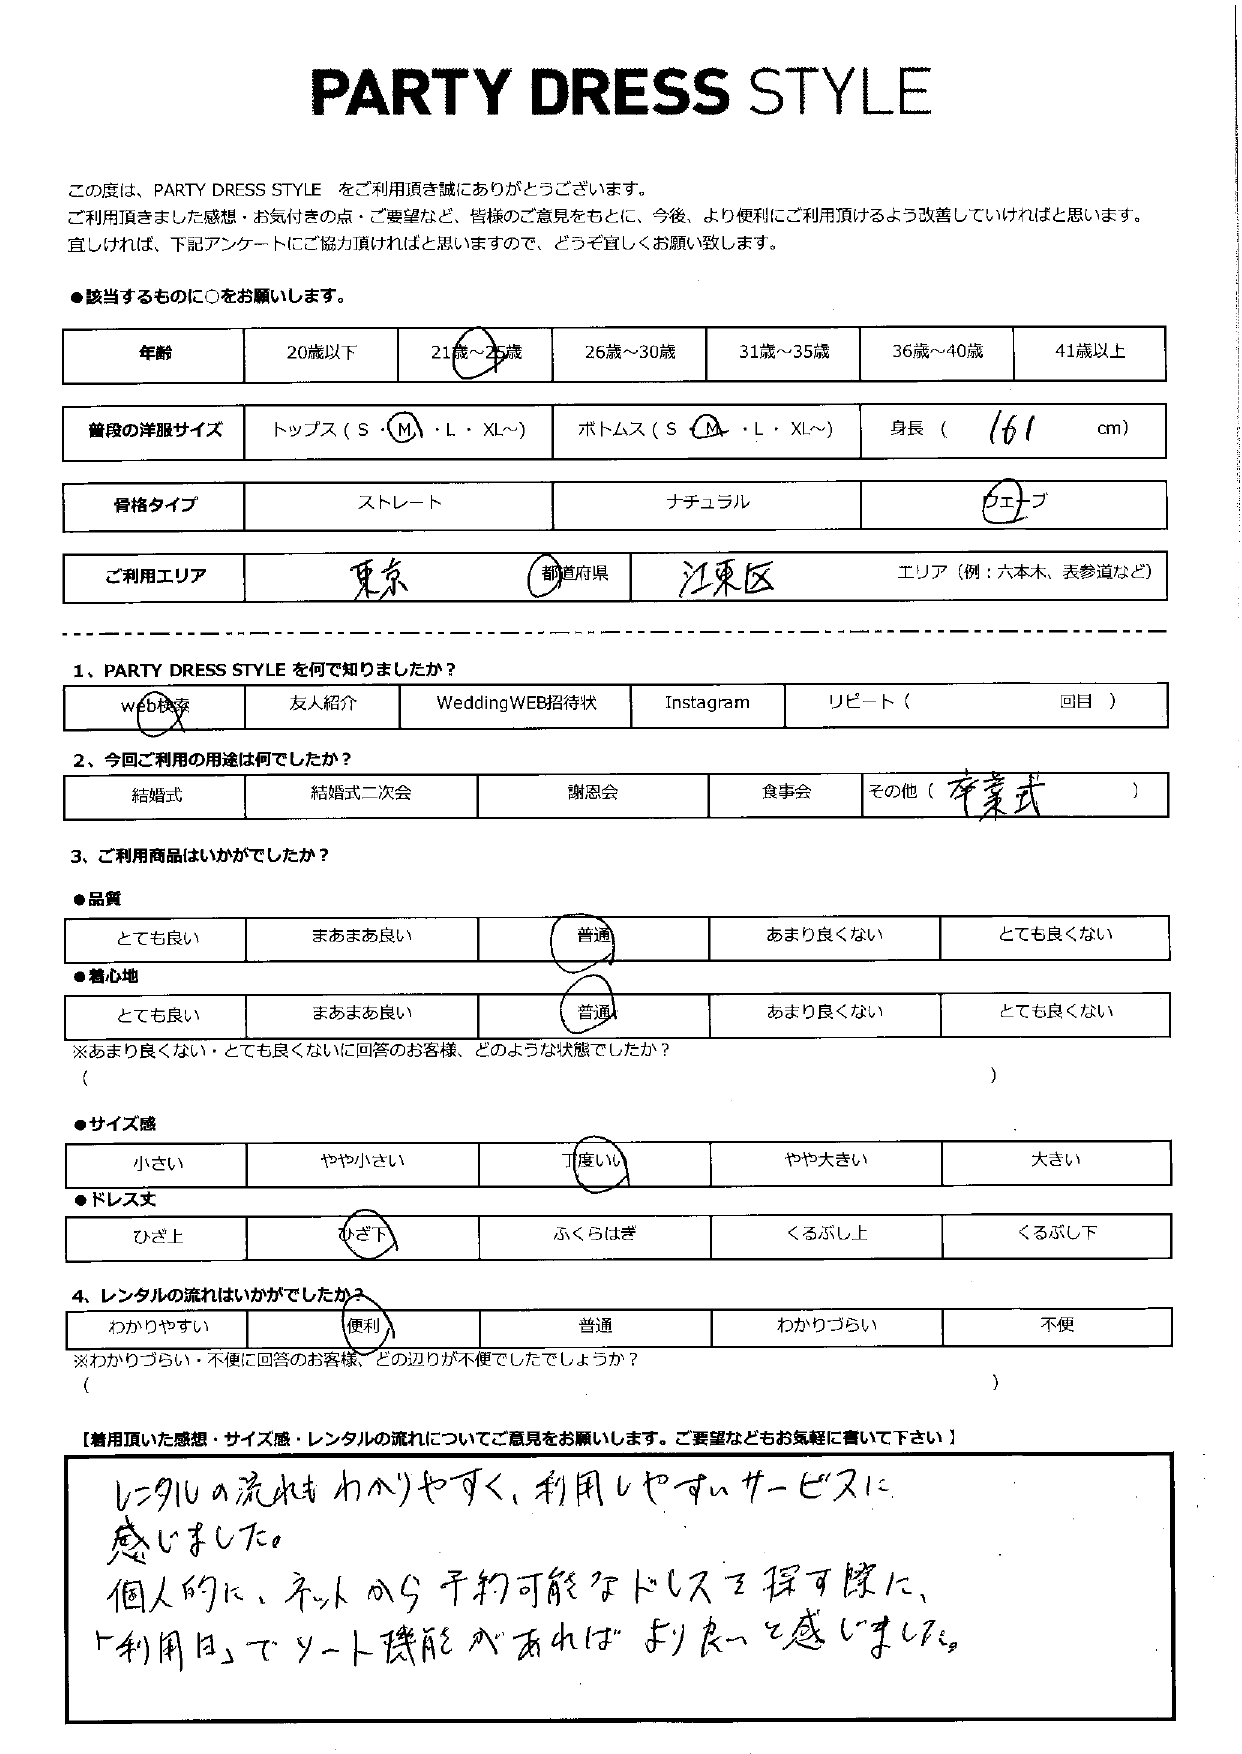 PARTY DRESS STYLE
この度は、PARTY DRESS STYLE　をご利用頂き誠にありがとうございます。
ご利用頂きました感想・お気付きの点・ご要望など、皆様のご意見をもとに、今後、より便利にご利用頂けるよう改善していければと思います。
宜しければ、下記アンケートにご協力頂ければと思いますので、どうぞ宜しくお願い致します。
●該当するものに○をお願いします。
年齢 20歳以下 21歳～25歳 26歳～30歳 31歳～35歳 36歳～40歳 41歳以上
普段の洋服サイズ トップス（ S ・M ・L ・ XL～） ボトムス（ S ・M ・L ・ XL～） 身長 （ 161 cm）
骨格タイプ ストレート ナチュラル ウェーブ
ご利用エリア 東京 都道府県 江東区 エリア（例：六本木、表参道など）
1、PARTY DRESS STYLE を何で知りましたか？
web検索 友人紹介 WeddingWEB招待状 Instagram リピート（ 回目 ）
2、今回ご利用の用途は何でしたか？
結婚式 結婚式二次会 謝恩会 食事会 その他（ 卒業式 ）
3、ご利用商品はいかがでしたか？
●品質
とても良い まあまあ良い 普通 あまり良くない とても良くない
●着心地
とても良い まあまあ良い 普通 あまり良くない とても良くない
※あまり良くない・とても良くないに回答のお客様、どのような状態でしたか？
（ ）
●サイズ感
小さい やや小さい 丁度いい やや大きい 大きい
●ドレス丈
ひざ上 ひざ下 ふくらはぎ くるぶし上 くるぶし下
4、レンタルの流れはいかがでしたか？
わかりやすい 便利 普通 わかりづらい 不便
※わかりづらい・不便に回答のお客様、どの辺りが不便でしたでしょうか？
（ ）
【着用頂いた感想・サイズ感・レンタルの流れについてご意見をお願いします。ご要望などもお気軽に書いて下さい】
レンタルの流れもわかりやすく、利用しやすいサービスに
感じました。
個人的に、ネットから予約可能なドレスを探す際に、
「利用日」でソート機能があればより良いと感じました。